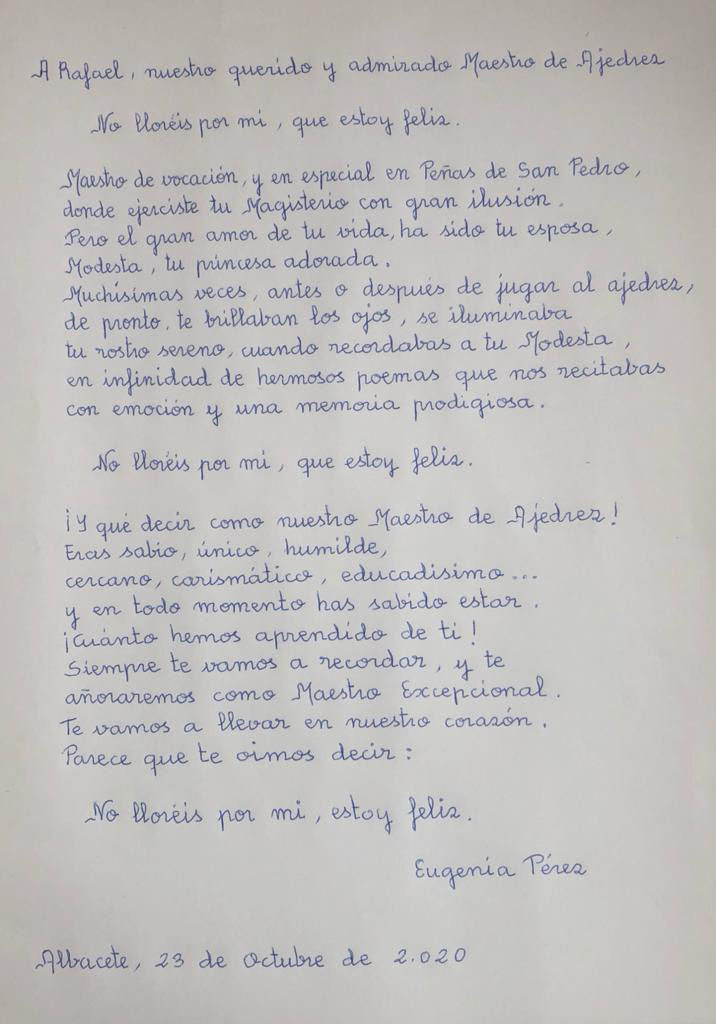 A Rafael, nuestro querido y admirado Maestro de Ajedrez
No lloréis por mi, que estoy feliz.
Maestro de vocación, y en especial en Peñas de San Pedro,
donde ejerciste tu Magisterio con gran ilusión.
Pero el gran amor de tu vida, ha sido tu esposa,
Modesta, tu princesa adorada.
Muchísimas veces, antes o después de jugar al ajedrez,
de pronto, te brillaban los ojos, se iluminaba
tu rostro sereno, cuando recordabas a tu Modesta,
en infinidad de hermosos poemas que nos recitabas
con emoción y una memoria prodigiosa.
No lloréis por mi, que estoy feliz.
¡Y qué decir como nuestro Maestro de Ajedrez!
Eras sabio, único, humilde,
cercano, carismático, educadisimo...
y en todo momento has sabido estar.
¡Cuánto hemos aprendido de ti!
Siempre te vamos a recordar, y te
añoraremos como Maestro Excepcional.
Te vamos a llevar en nuestro corazón.
Parece que te oimos decir:
No lloréis por mi, estoy feliz.
Eugenia Pérez
Albacete, 23 de Octubre de 2.020